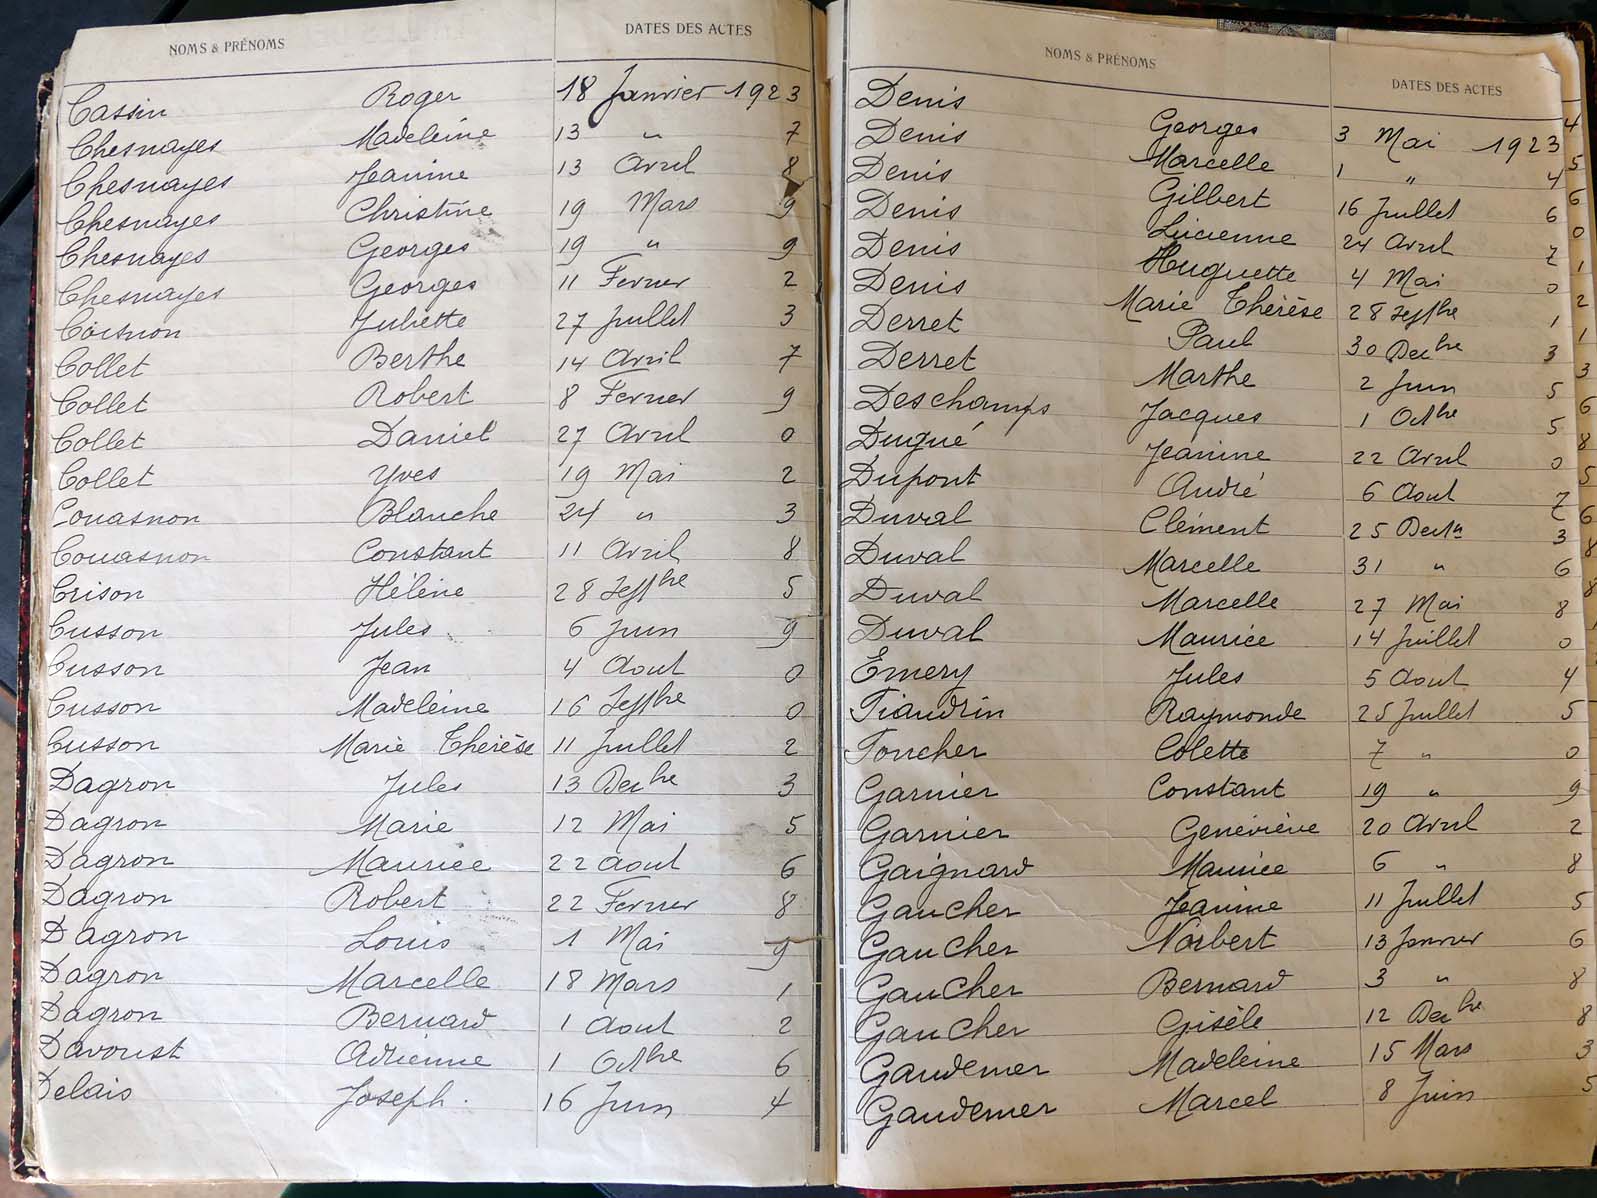 NOMS & PRÉNOMS DATES DES ACTES
Cassin Roger 18 Janvier 1923
Chesnayes Madeleine 13 " 7
Chesnayes Jeanine 13 Avril 8
Chesnayes Christine 19 Mars 9
Chesnayes Georges 19 " 9
Chesnayes Georges 11 Fevrier 2
Coisnon Juliette 27 Juillet 3
Collet Berthe 14 Avril 7
Collet Robert 8 Fevrier 9
Collet Daniel 27 Avril 0
Collet Yves 19 Mai 2
Couasnon Blanche 24 " 3
Couasnon Constant 11 Avril 8
Crison Hélène 28 Septbre 5
Cusson Jules 6 Juin 9
Cusson Jean 4 Aout 0
Cusson Madeleine 16 Septbre 0
Cusson Marie Thérèse 11 Juillet 2
Dagron Jules 13 Decbre 3
Dagron Marie 12 Mai 5
Dagron Maurice 22 aout 6
Dagron Robert 22 Fevrier 8
Dagron Louis 1 Mai 9
Dagron Marcelle 18 Mars 1
Dagron Bernard 1 Aout 2
Davoust Adrienne 1 Octbre 6
Delais Joseph. 16 Juin 4
NOMS & PRÉNOMS DATES DES ACTES
Denis Georges 3 Mai 1923
Denis Marcelle 1 " 4
Denis Gilbert 16 Juillet 6
Denis Lucienne 24 Avril 7
Denis Huguette 4 Mai 0
Denis Marie Thérèse 28 Septbre 1
Derret Paul 30 Decbre 3
Derret Marthe 2 Juin 5
Deschamps Jacques 1 Octbre 5
Dugué Jeanine 22 Avril 0
Dupont André 6 Aout 7
Duval Clément 25 Decbre 3
Duval Marcelle 31 " 6
Duval Marcelle 27 Mai 8
Duval Maurice 14 Juillet 0
Emery Jules 5 Aout 4
Fiandrin Raymonde 25 Juillet 5
Foucher Colette 7 " 0
Garnier Constant 19 " 9
Garnier Geneviève 20 Avril 2
Gaignard Maurice 6 " 8
Gaucher Jeanine 11 Juillet 5
Gaucher Norbert 13 Janvier 6
Gaucher Bernard 3 " 8
Gaucher Gisèle 12 Decbre 8
Gaudemer Madeleine 15 Mars 3
Gaudemer Marcel 8 Juin 5